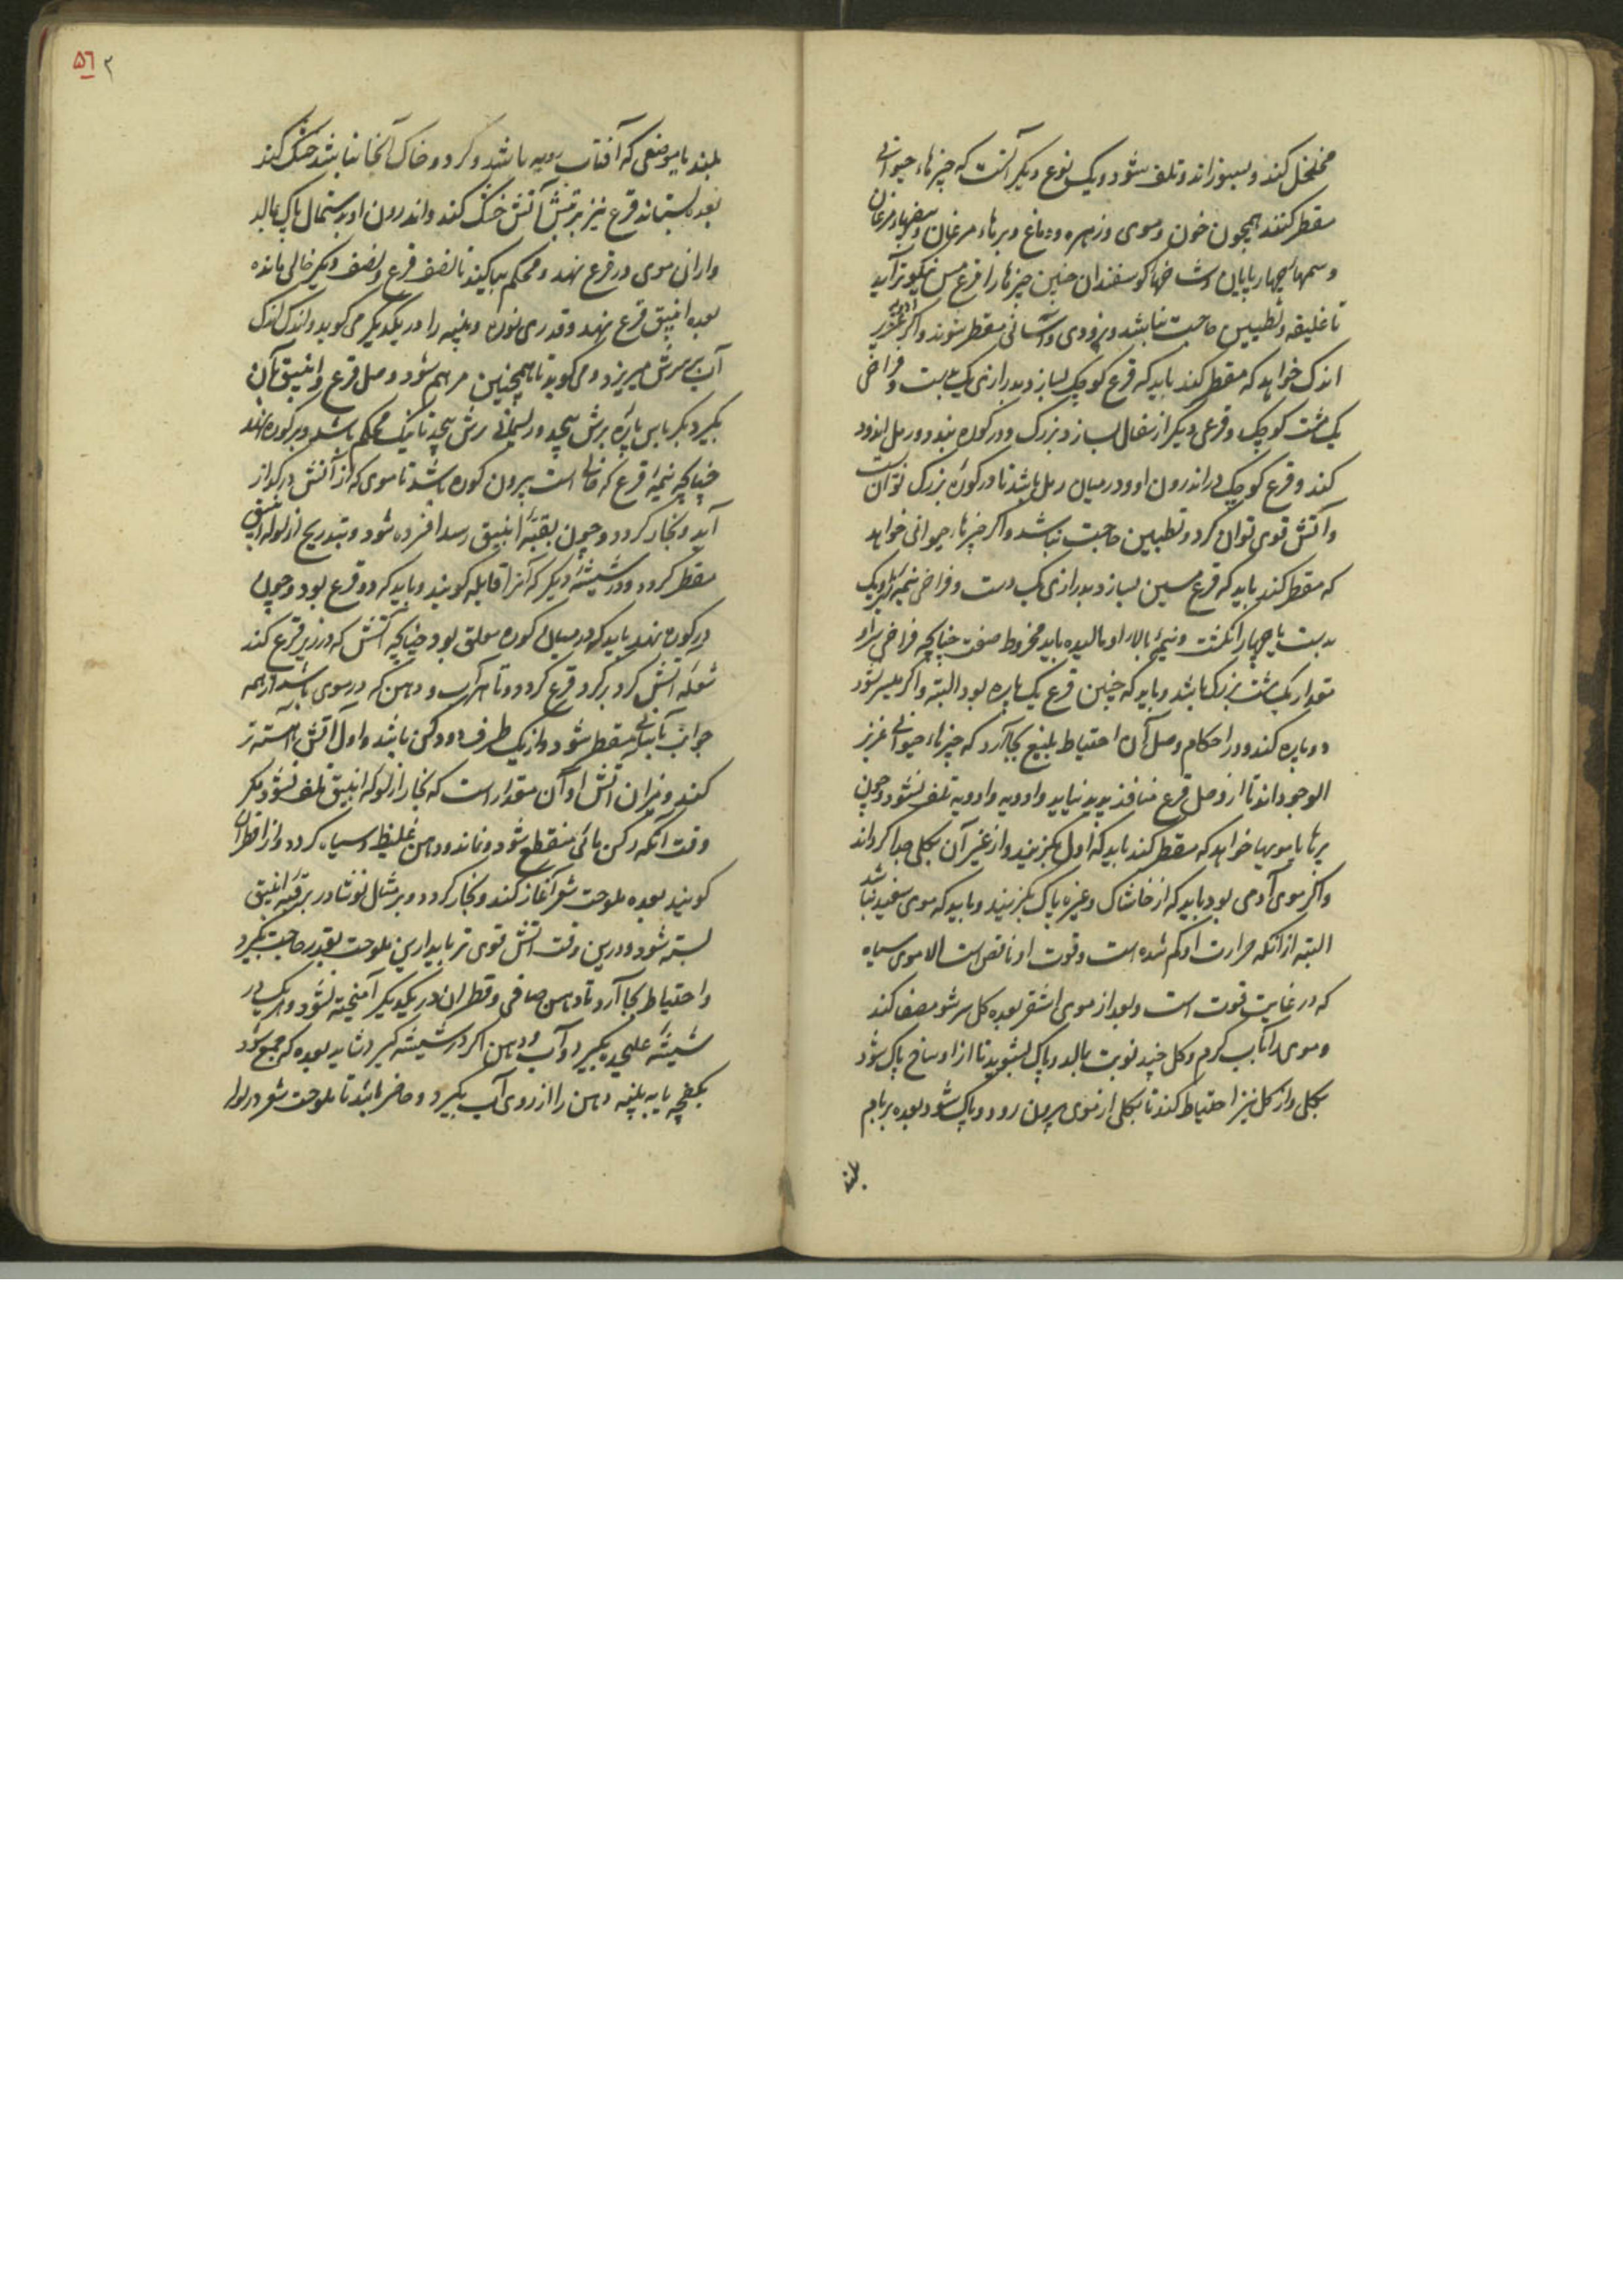 متخلخل کند و بسوزاند و تلف شود و یک نوع دیگر آنست که چیزهاء حیوانی
مقطر کنند همچون خون و موی و زهره و دماغ و پرهاء مرغان و بیضهاء مرغان
و سمهاء چهارپایان و شاخهاء کوسفندان چنین چیزها را قرع مس نیکوتر آید
تا غلیقه و تطیین حاجت نباشد و بزودی و آسانی مقطر شوند و اگر
اندک خواهد که مقطر کند باید که قرع کوچک بسازد بدرازی یک بدست و فراخی
یک مشت کوچک و قرعی دیگر از سفال بسازد بزرک و در کوره بندد و رمل اندود
کند و قرع کوچک در اندرون او و در میان رمل باشد تا در کورۀ بزرک توان
و آتش قوی توان کرد و تطیین حاجت نباشد و اگر چیزهاء حیوانی خواهد
که مقطر کند باید که قرع مسین بسازد بدرازی یک دست و فراخی نیمۀ زیر او یک
بدست با چهار انگشت و نیمۀ بالاء او مالیده باید مخروط صفت چنانچه فراخی سر او
مقدار یک مشت بزرک باشد و باید که چنین قرع یک پاره بود البته و اگر میسر نشود
دو پاره کند و در احکام وصل آن احتیاط بلیغ بجا آرد که چیزهاء حیوانی عزیز
الوجود اند تا از وصل قرع منافذ پدید نیاید و ادویه تلف نشود و چون
پرها یا مویها خواهد که مقطر کند باید که اول بگزیند و از غیر آن بکلی جدا کرداند
و اگر موی آدمی بود باید که از خاشاک و غیره پاک بگزیند و باید که موی سفید نباشد
البته از آنکه حرارت او کم شده است و قوت او ناقص است الا موی سیاه
که در غایت قوت است و بعد از موی اشقر بعده کل سرشو مصفا کند
و موی را بآب کرم و کل چند نوبت بمالد و پاک بشوید تا از اوساخ پاک شود
بکلی و از کل نیز احتیاط کند تا بکلی از موی بیرون رود و پاک شود بعده بر بام
بلند
۵٦
بلند یا موضعی که آفتاب روبه باشد و کرد و خاک آنجا نباشد خشک کند
بعده بستاند قرع نیز بر تبش آتش خشک کند و اندرون او بدستمال پاک بمالد
و از آن موی در قرع نهد و محکم بیاکیند تا نصف قرع و نصف دیگر خالی مانده
بعده انبیق قرع نهد و قدری نوره و پنبه را در یکدیگر می کوبد و اندک اندک
آب بر سرش میریزد و می کوبد تا همچنین مرهم شود و وصل قرع و انبیق بآن
بگیرد و کرباس پاره برش پیچد و ریسمانی برش پیچد تا نیک محکم باشد و بر کوره نهد
چنانچه نیمۀ قرع که خالی است بیرون کوره باشد تا موی که از آتش در کداز
آید و بخار کردد و چون بقبۀ انبیق رسد افسرده شود و بتدریج از لولۀ انبیق
مقطر کردد و در شیشۀ دیگر که آنرا قابله کویند و باید که دو قرع بود و چون
در کوره نهد باید که در میان کوره معلق بود چنانچه آتش که در زیر قرع کند
شعلۀ آتش کرد بر کرد قرع کردد و تا هر آب و دهن که در موی باشد از همه
جوانب بآسانی مقطر شود و از یک طرف دودکش باشد و اول آتش آهسته تر
کند و میزان آتش او آن مقدار است که بخار از لولۀ انبیق تلف نشود مگر
وقت آنکه رکن مائی منقطع شود و نماند و دهن غلیظ و سیاه کردد و از آن قطران
کویند بعده ملوحت شعر آغاز کند و بخار کردد و بر مثال نوشادر بر قبۀ انبیق
بسته شود و درین وقت آتش قوی تر باید ازین ملوحت بقدر حاجت بگیرد
و احتیاط بجا آرد تا دهن صافی و قطران در یکدیگر آمیخته نشود و هر یک در
شیشۀ علیحده بگیرد و آب و دهن اگر در شیشه کیرد شاید بعده که جمع شود
بکفچه یا به پنبه دهن را از روی آب بگیرد و حاضر باشد تا ملوحت شعر در لوله